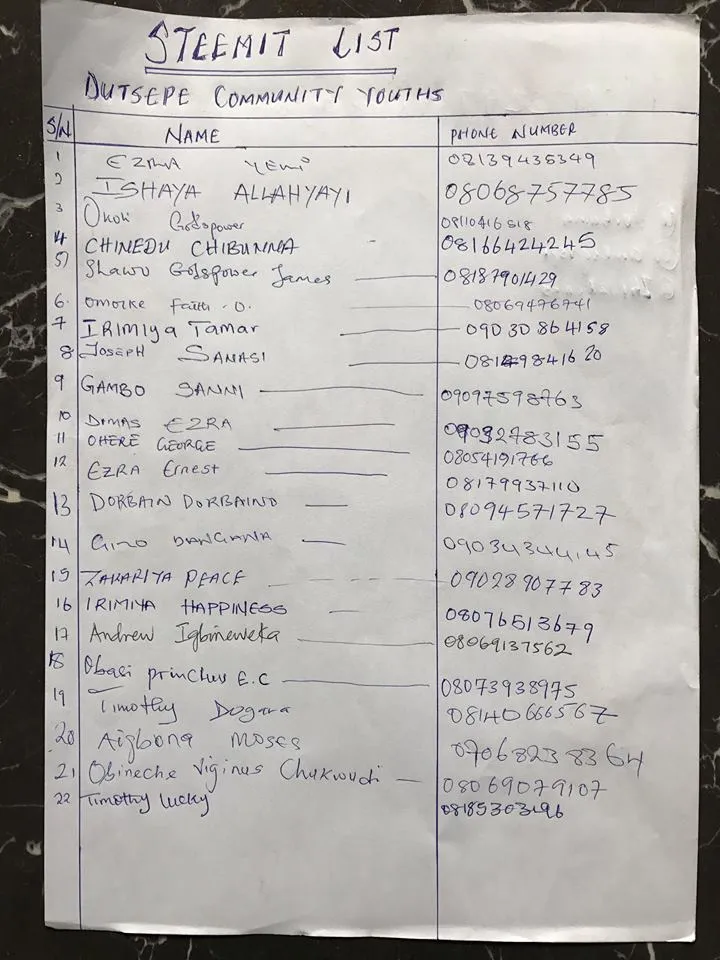 STEEMIT LIST
DUTSEPE COMMUNITY YOUTHS
S/N NAME PHONE NUMBER
1 EZRA YEMI 08139435349
2 ISHAYA ALLAHYAYI 08068757785
3 Okoli Godspower 08110416518
4 CHINEDU CHIBUNNA 08166424245
5) Shawo Godspower James 08187901429
6. Omorke faith . O. 08069476741
7 IRIMIYA Tamar 09030864158
8 JOSEPH SANASI
9 GAMBO SANNI 09097598763
10 DIMAS EZRA 09032783155
11 OHERE GEORGE 08054191766
12 EZRA Ernest 08179937110
13 DORBAIN DORBAIND 08094571727
14 Gino DANGANA
15 ZAKARIYA PEACE 09028907783
16 IRIMIYA HAPPINESS 08076513679
17 Andrew Igbineweka 08069137562
18 Obasi princhus E.C 08073938975
19 Timothy Dogara 08140666567
20 Aigbona MOSES 07068238364
21 Obineche Viginus Chukwudi 08069079107
22 Timothy lucky